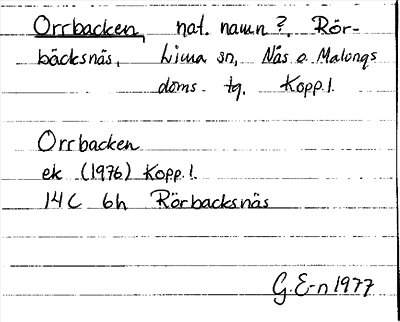 Orrbacken, nat. namn?, Rör-
bäcksnäs, Lima sn, Näs o. Malungs
doms. tg. Kopp. l.
Orrbacken
ek (1976) Kopp. l.
14C 6h Rörbacksnäs
G. E-n 1977